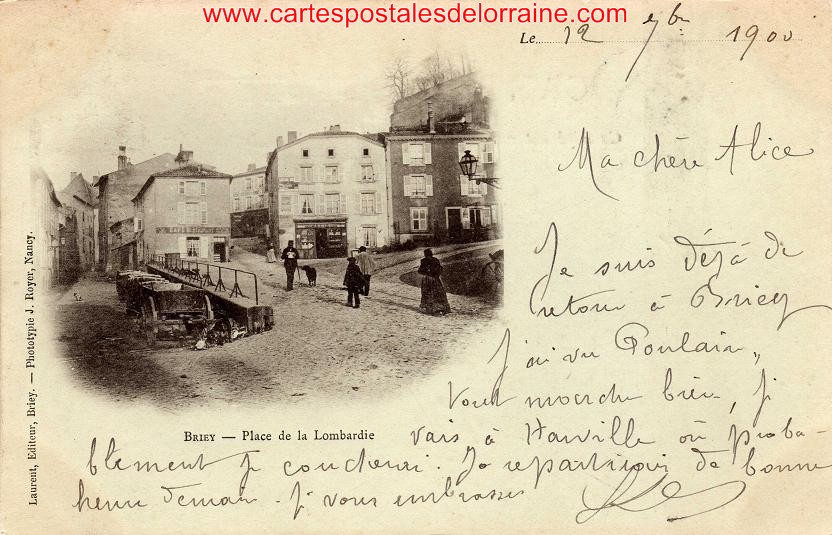 www.cartespostalesdelorraine.com
Le 12 7bre 1900
Ma chère Alice
Je suis déjà de
retour à Briey
j'ai vu Poulain,
Tout marche bien, je
BRIEY — Place de la Lombardie
vais à Hanville où proba-
blement je coucherai. Je repartirai de bonne
heure demain. Je vous embrasse
Laurent, Editeur, Briey. — Phototypie J. Royer, Nancy.